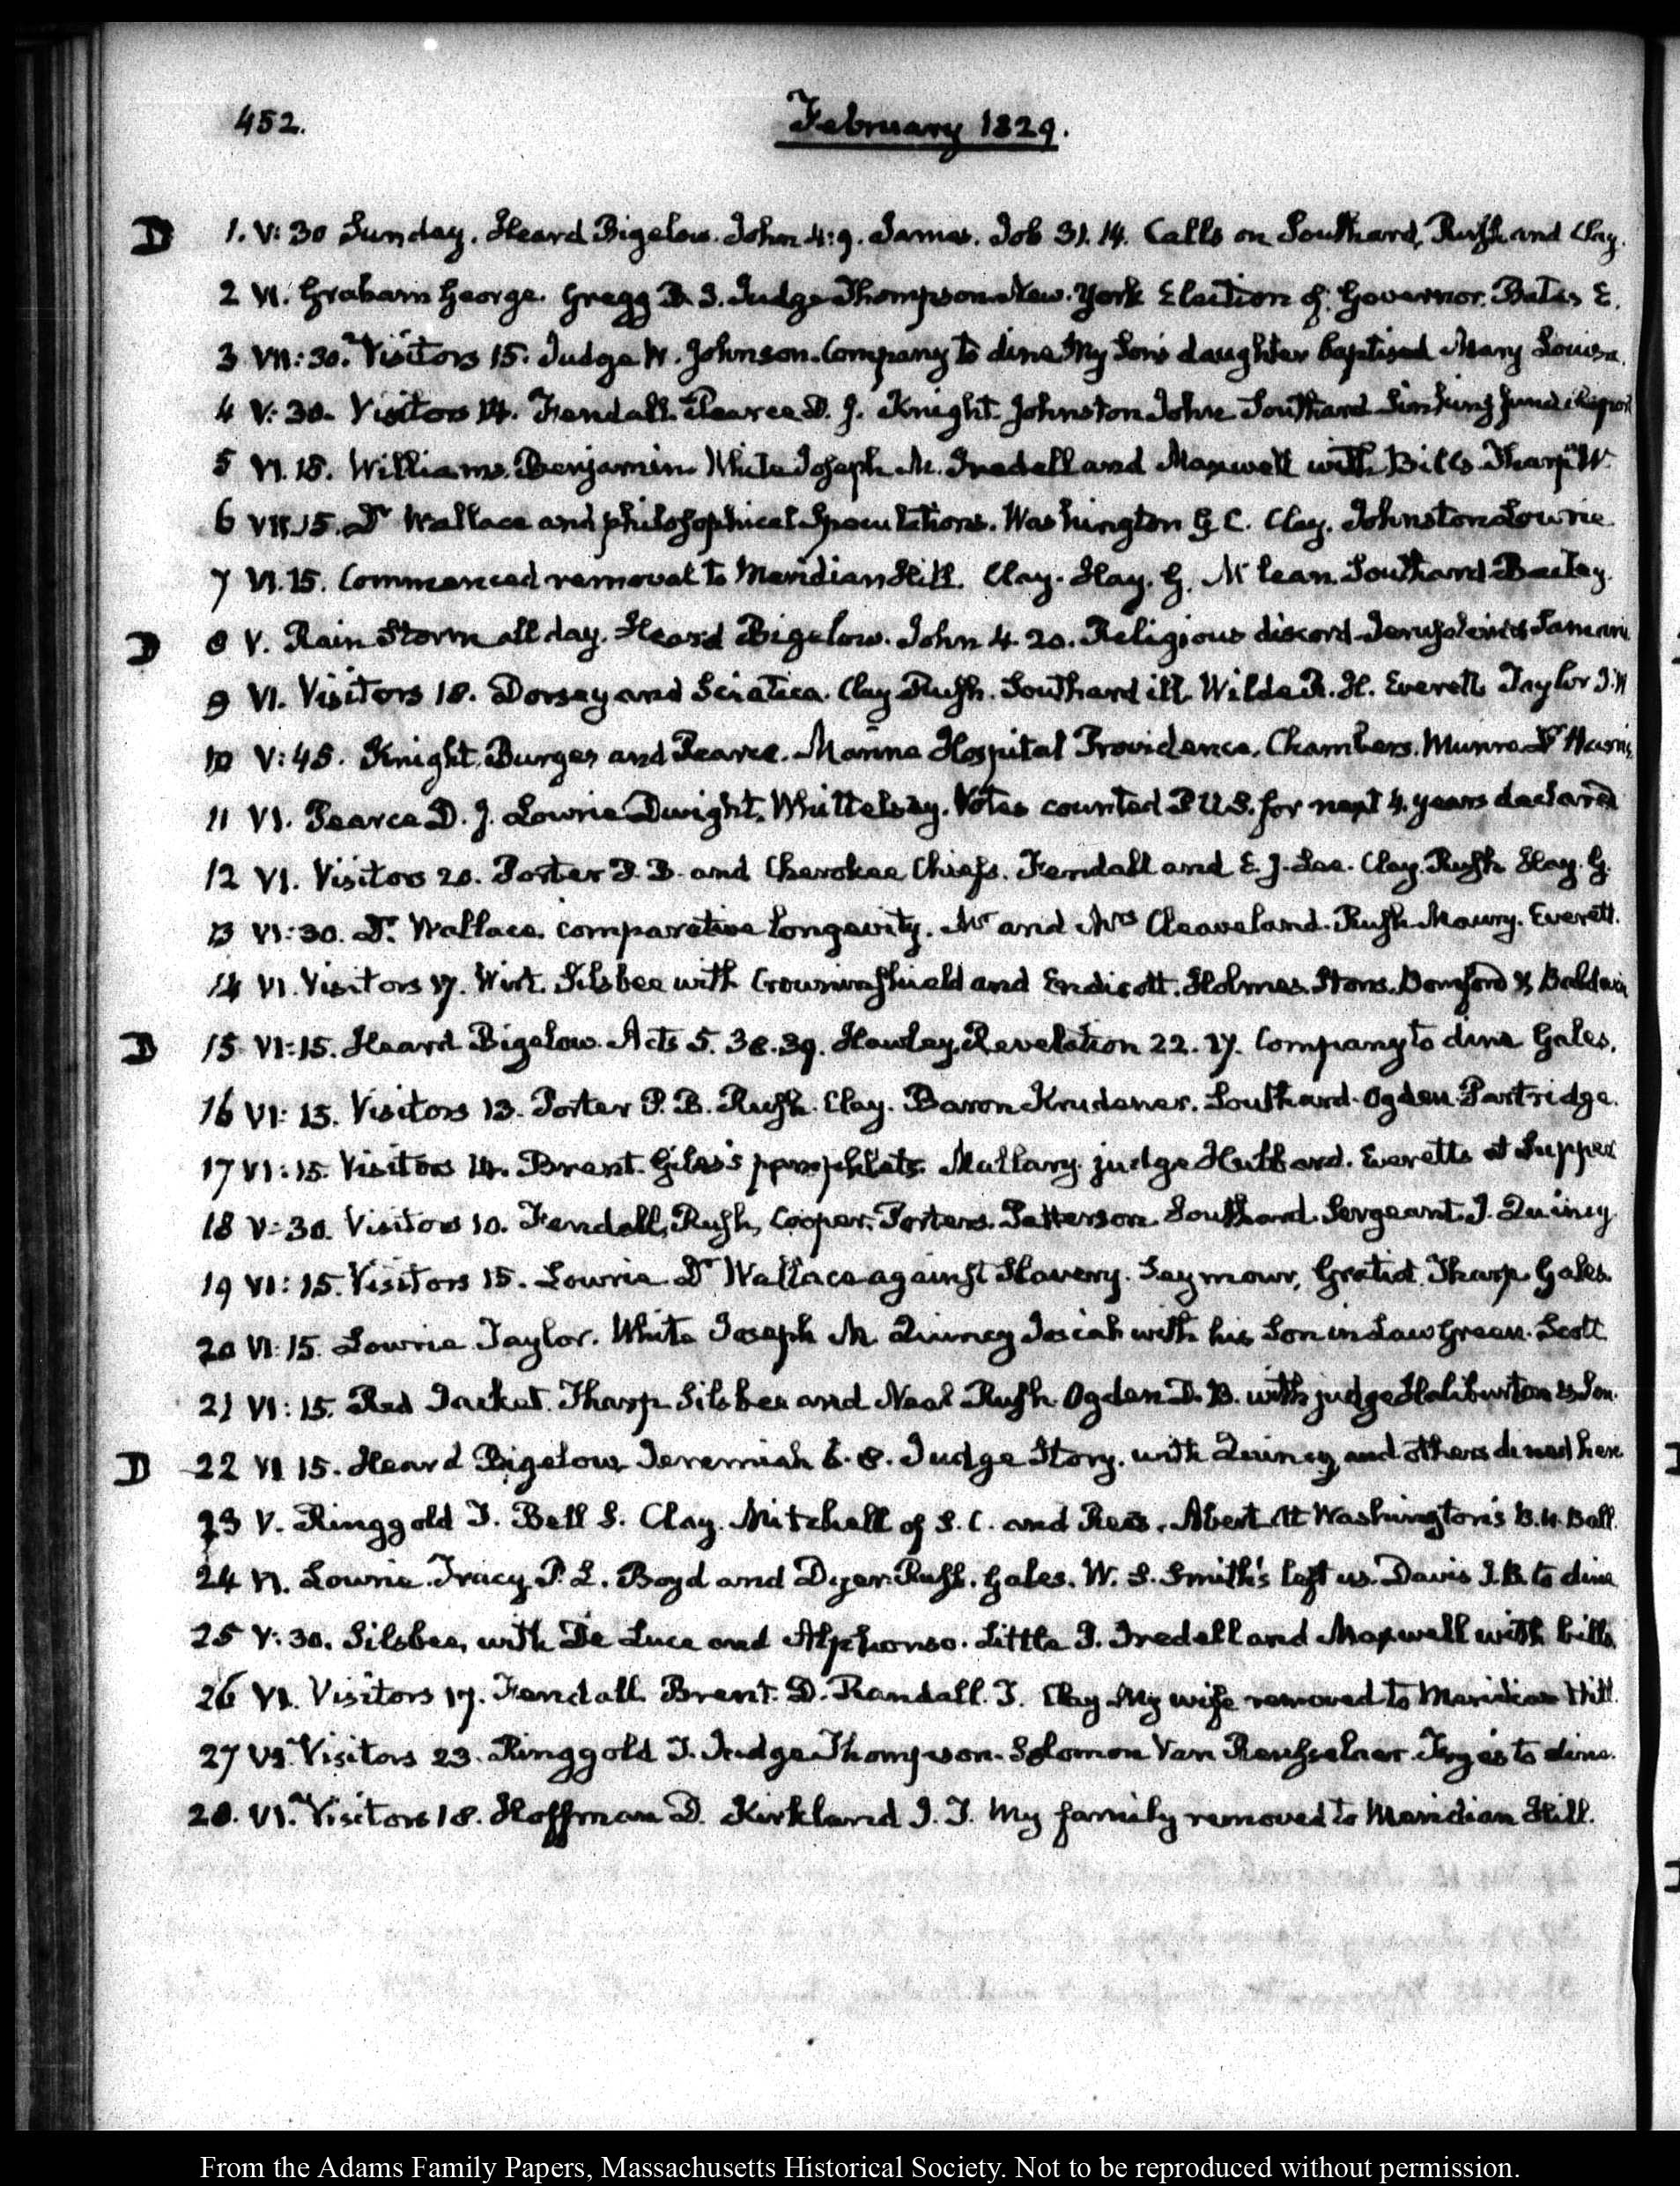 452.
February 1829.
D 1. V:30 Sunday. Heard Bigelow. John 4:9. James. Job 31.14. Calls on Southard, Rush and Clay.
2 VI. Graham George. Gregg Judge Thompson New-York Election of Governor. Bates E.
3 VII:30. Visitors 15. Judge W. Johnson. Company to dine My Son's daughter baptised Mary Louisa.
4 V:30. Visitors 14. Fendall. Pearce D. J. Knight. Johnston John Southard Sinking fund Report
5 VI.15. Williams. Benjamin. White Joseph M. Iredell and Maxwell with Bills Tharp W.
6 VII.15. Dr Wallace and philosophical Speculations. Washington G. C. Clay. Johnston Lowrie
7 VI.15. Commenced removal to Meridian Hill. Clay. Hay. G. McLean. Southard Bailey.
D 8 V. Rain Storm all day. Heard Bigelow. John 4.20. Religious discord Jerusalem Samari
9 VI. Visitors 18. Dorsey and Sciatica. Clay Rush. Southard ill. Wilde R. H. Everett Taylor J. W
10 V:45. Knight, Burges and Pearce. Marine Hospital Providence. Chambers. Munro Dr
11 VI. Pearce D. J. Lowrie Dwight. Whittelsey. Votes counted P U.S. for next 4 years declared
12 VI. Visitors 20. Porter P. B. and Cherokee Chiefs. Fendall and E. J. Lee. Clay. Rush Hay. G.
13 VI:30. Dr. Wallace. comparative longevity. Mr and Mrs Cleaveland. Rush. Maury. Everett.
14 VI. Visitors 17. Wirt. Silsbee with Crowninshield and Endicott. Holmes. Bomford & Baldwin
D 15 VI:15. Heard Bigelow. Acts 5. 38.39. Hawley, Revelation 22.17. Company to dine Gales.
16 VI:15. Visitors 13. Porter P. B. Rush. Clay. Baron Krudener. Southard. Ogden Partridge.
17 VI:15. Visitors 14. Brent. Giles's pamphlets. Mallary. judge Hubbard. Everetts at Supper
18 V:30. Visitors 10. Fendall, Rush, Cooper. Porters. Patterson. Southard. Sergeant J. Quincy
19 VI:15. Visitors 15. Lowrie Dr Wallace against Slavery. Seymour, Gratiot. Tharp. Gales.
20 VI:15. Lowrie Taylor. White Joseph M Quincy Josiah with his Son in Law Green. Scott
21 VI:15. Red Jacket. Tharp. Silsbee and Neal Rush. Ogden D. B. with judge Haliburton & Son.
D 22 VI 15. Heard Bigelow Jeremiah 6.8. Judge Story. with Quincy and others dined here
23 V. Ringgold T. Bell S. Clay. Mitchell of S. C. and Rees. Abert At Washington's B. N. Ball.
24 VI. Lowrie. Tracy P. L. Boyd and Dyer. Rush. Gales. W. S. Smith's left us. Davis J. B. to dine
25 V:30. Silsbee, with De Luce and Alphonso. Little P. Iredell and Maxwell with bills
26 VI. Visitors 17. Fendall. Brent. D. Randall. T. Clay My wife removed to Meridian Hill.
27 VI. Visitors 23. Ringgold T. Judge Thompson. Solomon Van Rensselaer. Fryes to dine.
28. VI. Visitors 18. Hoffman D. Kirkland J. T. My family removed to Meridian Hill.
From the Adams Family Papers, Massachusetts Historical Society. Not to be reproduced without permission.